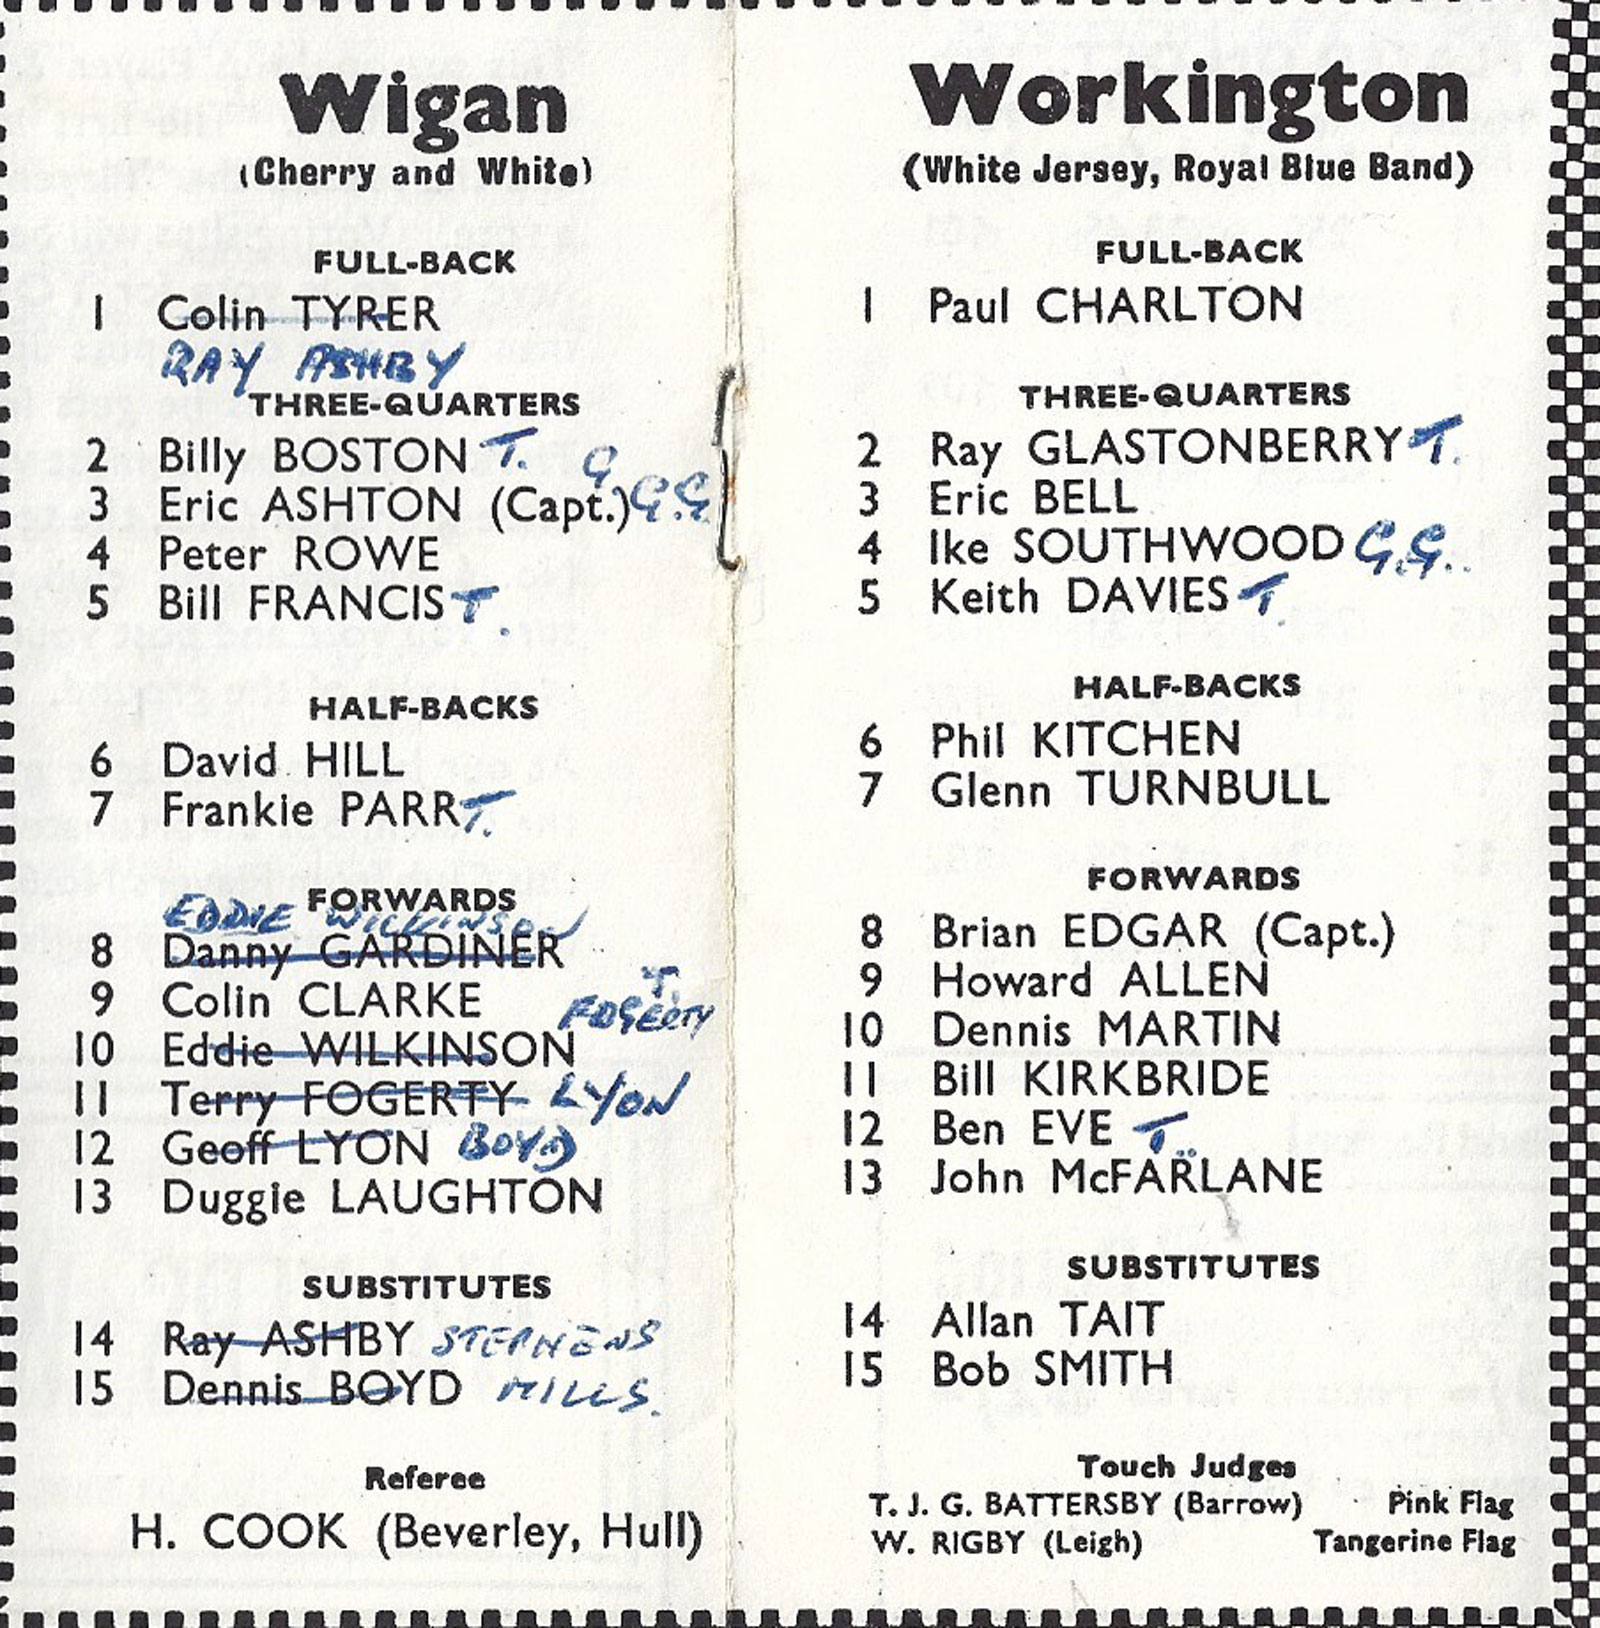 Wigan
(Cherry and White)
FULL-BACK
1 Colin TYRER
RAY ASHBY
THREE-QUARTERS
2 Billy BOSTON T.
3 Eric ASHTON (Capt.) G G.G.
4 Peter ROWE
5 Bill FRANCIS T.
HALF-BACKS
6 David HILL
7 Frankie PARR T.
FORWARDS
EDDIE WILKINSON
8 Danny GARDINER
9 Colin CLARKE
T.
FOGERTY
10 Eddie WILKINSON
11 Terry FOGERTY LYON
12 Geoff LYON BOYD
13 Duggie LAUGHTON
SUBSTITUTES
14 Ray ASHBY STEPHENS
15 Dennis BOYD MILLS.
Referee
H. COOK (Beverley, Hull)
Workington
(White Jersey, Royal Blue Band)
FULL-BACK
1 Paul CHARLTON
THREE-QUARTERS
2 Ray GLASTONBERRY T.
3 Eric BELL
4 Ike SOUTHWOOD G.G..
5 Keith DAVIES T.
HALF-BACKS
6 Phil KITCHEN
7 Glenn TURNBULL
FORWARDS
8 Brian EDGAR (Capt.)
9 Howard ALLEN
10 Dennis MARTIN
11 Bill KIRKBRIDE
12 Ben EVE T..
13 John McFARLANE
SUBSTITUTES
14 Allan TAIT
15 Bob SMITH
Touch Judges
T. J. G. BATTERSBY (Barrow) Pink Flag
W. RIGBY (Leigh) Tangerine Flag